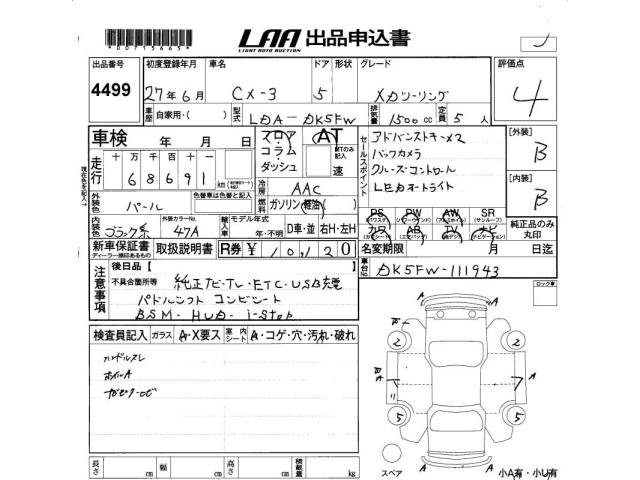 00715665
LAA 出品申込書
LIGHT AUTO AUCTION
出品番号 初度登録年月 車名 ドア 形状 グレード 評価点
4499 27年6月 CX-3 5 XDツーリング 4
車歴 自家用・( ) 型式 LDA-DK5FW 排気量 1500 cc 定員 5 人
車検 年 月 日
フロア・コラム・ダッシュ
AT
MTのみ記入
速
セールスポイント
アドバンストキー×2
バックカメラ
クルーズコントロール
LEDオートライト
[外装] B
[内装] B
走行 十万千百十一
68691 km
(現在の色を記入)
外装色 パール
色替車は色替と記入
冷房 AAC
燃料 ガソリン(軽油)
内装色 ブラック系 外装カラーNo. 47A
輸入車 モデル年式 年・不明 D車・並 右H・左H
PS PW AW SR
(パワステ) (パワーウインド) (アルミホイール) (サンルーフ)
カワ AB TV ナビ
純正品のみ丸印
新車保証書
ディーラー捺印あるもの
取扱説明書
R券 ¥ 10,120
名変期限 月 日迄
注意事項
後日品 [ ]
不具合箇所等
純正ナビ・TV・ETC・USB充電
パドルシフト コンビシート
BSM・HUD・i-stop
車台No. DK5FW-111943
ロック車
検査員記入 ガラス A・X要ス 室内シート A・コゲ・穴・汚れ・破れ
ハンドルスレ
ホイルA
A
2 2
A
7
5 5
A
スペア
小A有・小U有
長さ cm 幅 cm 高さ cm 積載量 kg